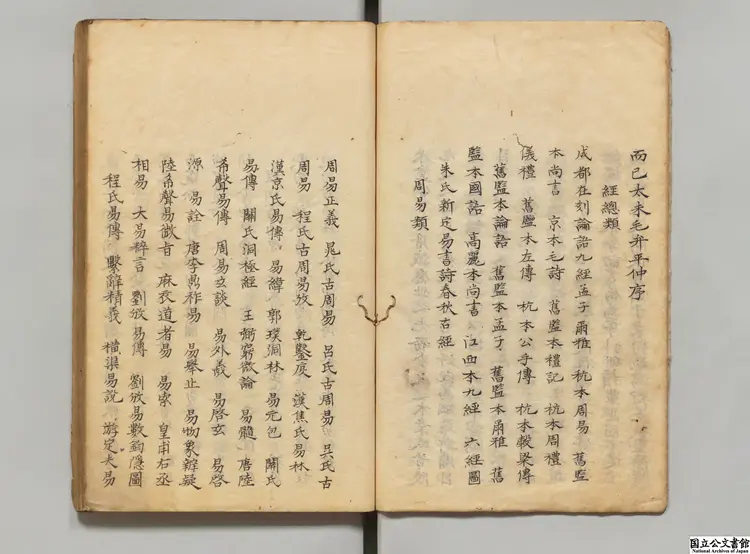 而已太末毛幵平仲序
經總類
成都在刻論語九經孟子爾雅　杭本周易　舊監
本尚書　京本毛詩　舊監本禮記　杭本周禮
儀禮　舊監本左傳　杭本公羊傳　杭本穀梁傳
舊監本論語　舊監本孟子　舊監本爾雅　舊
監本國語　高麗本尚書　江西本九經　六經圖
朱氏新定易書詩春秋古經
周易類
周易正義　晁氏古周易　呂氏古周易　吳氏古
周易　程氏古周易攷　乾鑿度　漢焦氏易林
漢京氏易傳　易緯　郭璞洞林　易元包　關氏
易傳　關氏洞極經　王弼窮微論　易髓　唐陸
希聲易傳　周易玄談　易外義　易啓玄　易啓
源　易詮　唐李鼎祚易　易舉止　易物象辨疑
陸希聲易微旨　麻衣道者易　易索　皇甫右丞
相易　大易粹言　劉攽易傳　劉攽易數鉤隱圖
程氏易傳　繫辭精義　橫渠易說　游定夫易
国立公文書館
National Archives of Japan